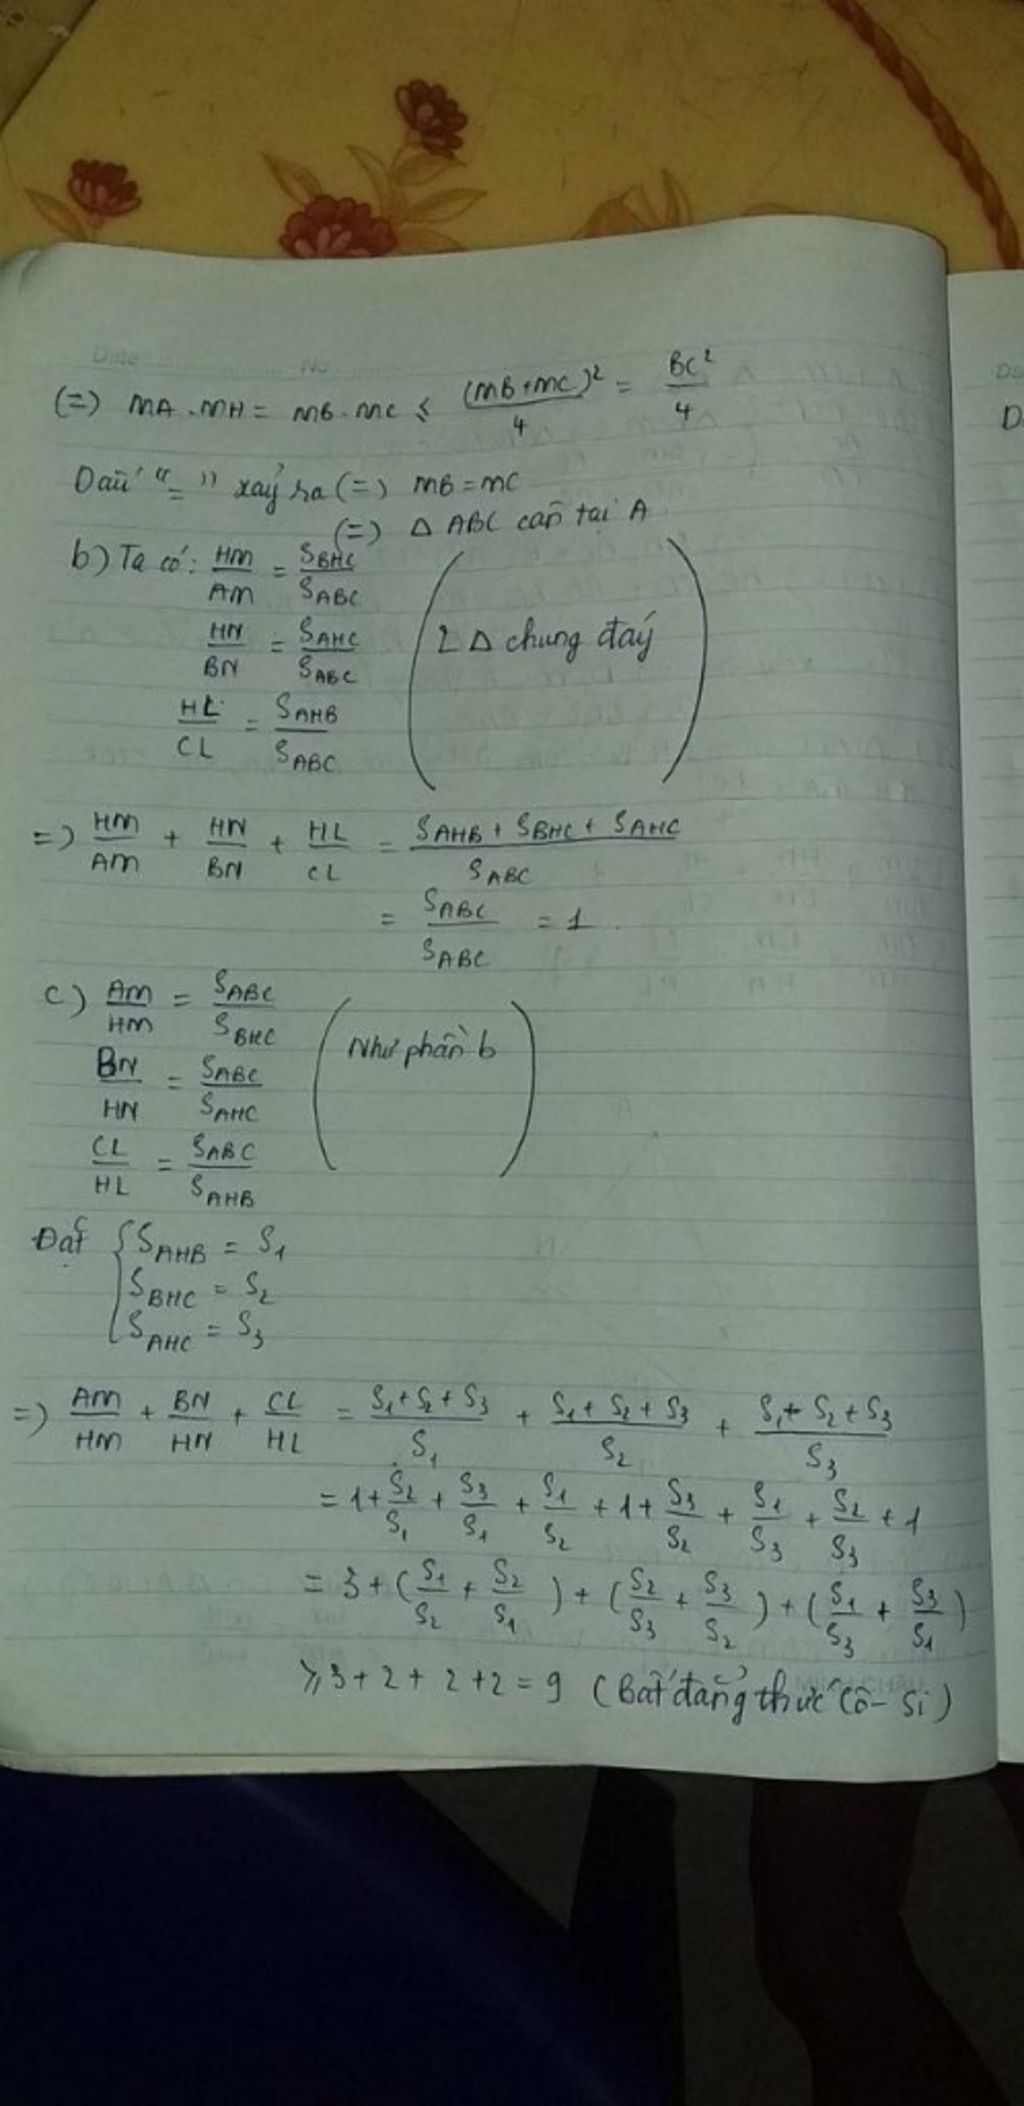 Date No
(=) MA.MH = MB.MC ≤ (MB+MC)²/4 = BC²/4
Dấu "=" xảy ra (=) MB=MC
(=) Δ ABC cân tại A
b) Ta có: HM/AM = S_BHC/S_ABC
HN/BN = S_AHC/S_ABC (2 Δ chung đáy)
HL/CL = S_AHB/S_ABC
=) HM/AM + HN/BN + HL/CL = (S_AHB + S_BHC + S_AHC)/S_ABC
= S_ABC/S_ABC = 1.
c) AM/HM = S_ABC/S_BHC
BN/HN = S_ABC/S_AHC (Như phần b)
CL/HL = S_ABC/S_AHB
Đặt { S_AHB = S₁
S_BHC = S₂
S_AHC = S₃
=) AM/HM + BN/HN + CL/HL = (S₁+S₂+S₃)/S₁ + (S₁+S₂+S₃)/S₂ + (S₁+S₂+S₃)/S₃
= 1 + S₂/S₁ + S₃/S₁ + S₁/S₂ + 1 + S₃/S₂ + S₁/S₃ + S₂/S₃ + 1
= 3 + (S₁/S₂ + S₂/S₁) + (S₂/S₃ + S₃/S₂) + (S₁/S₃ + S₃/S₁)
≥ 3+2+2+2 = 9 (Bất đẳng thức Cô-Si)
D